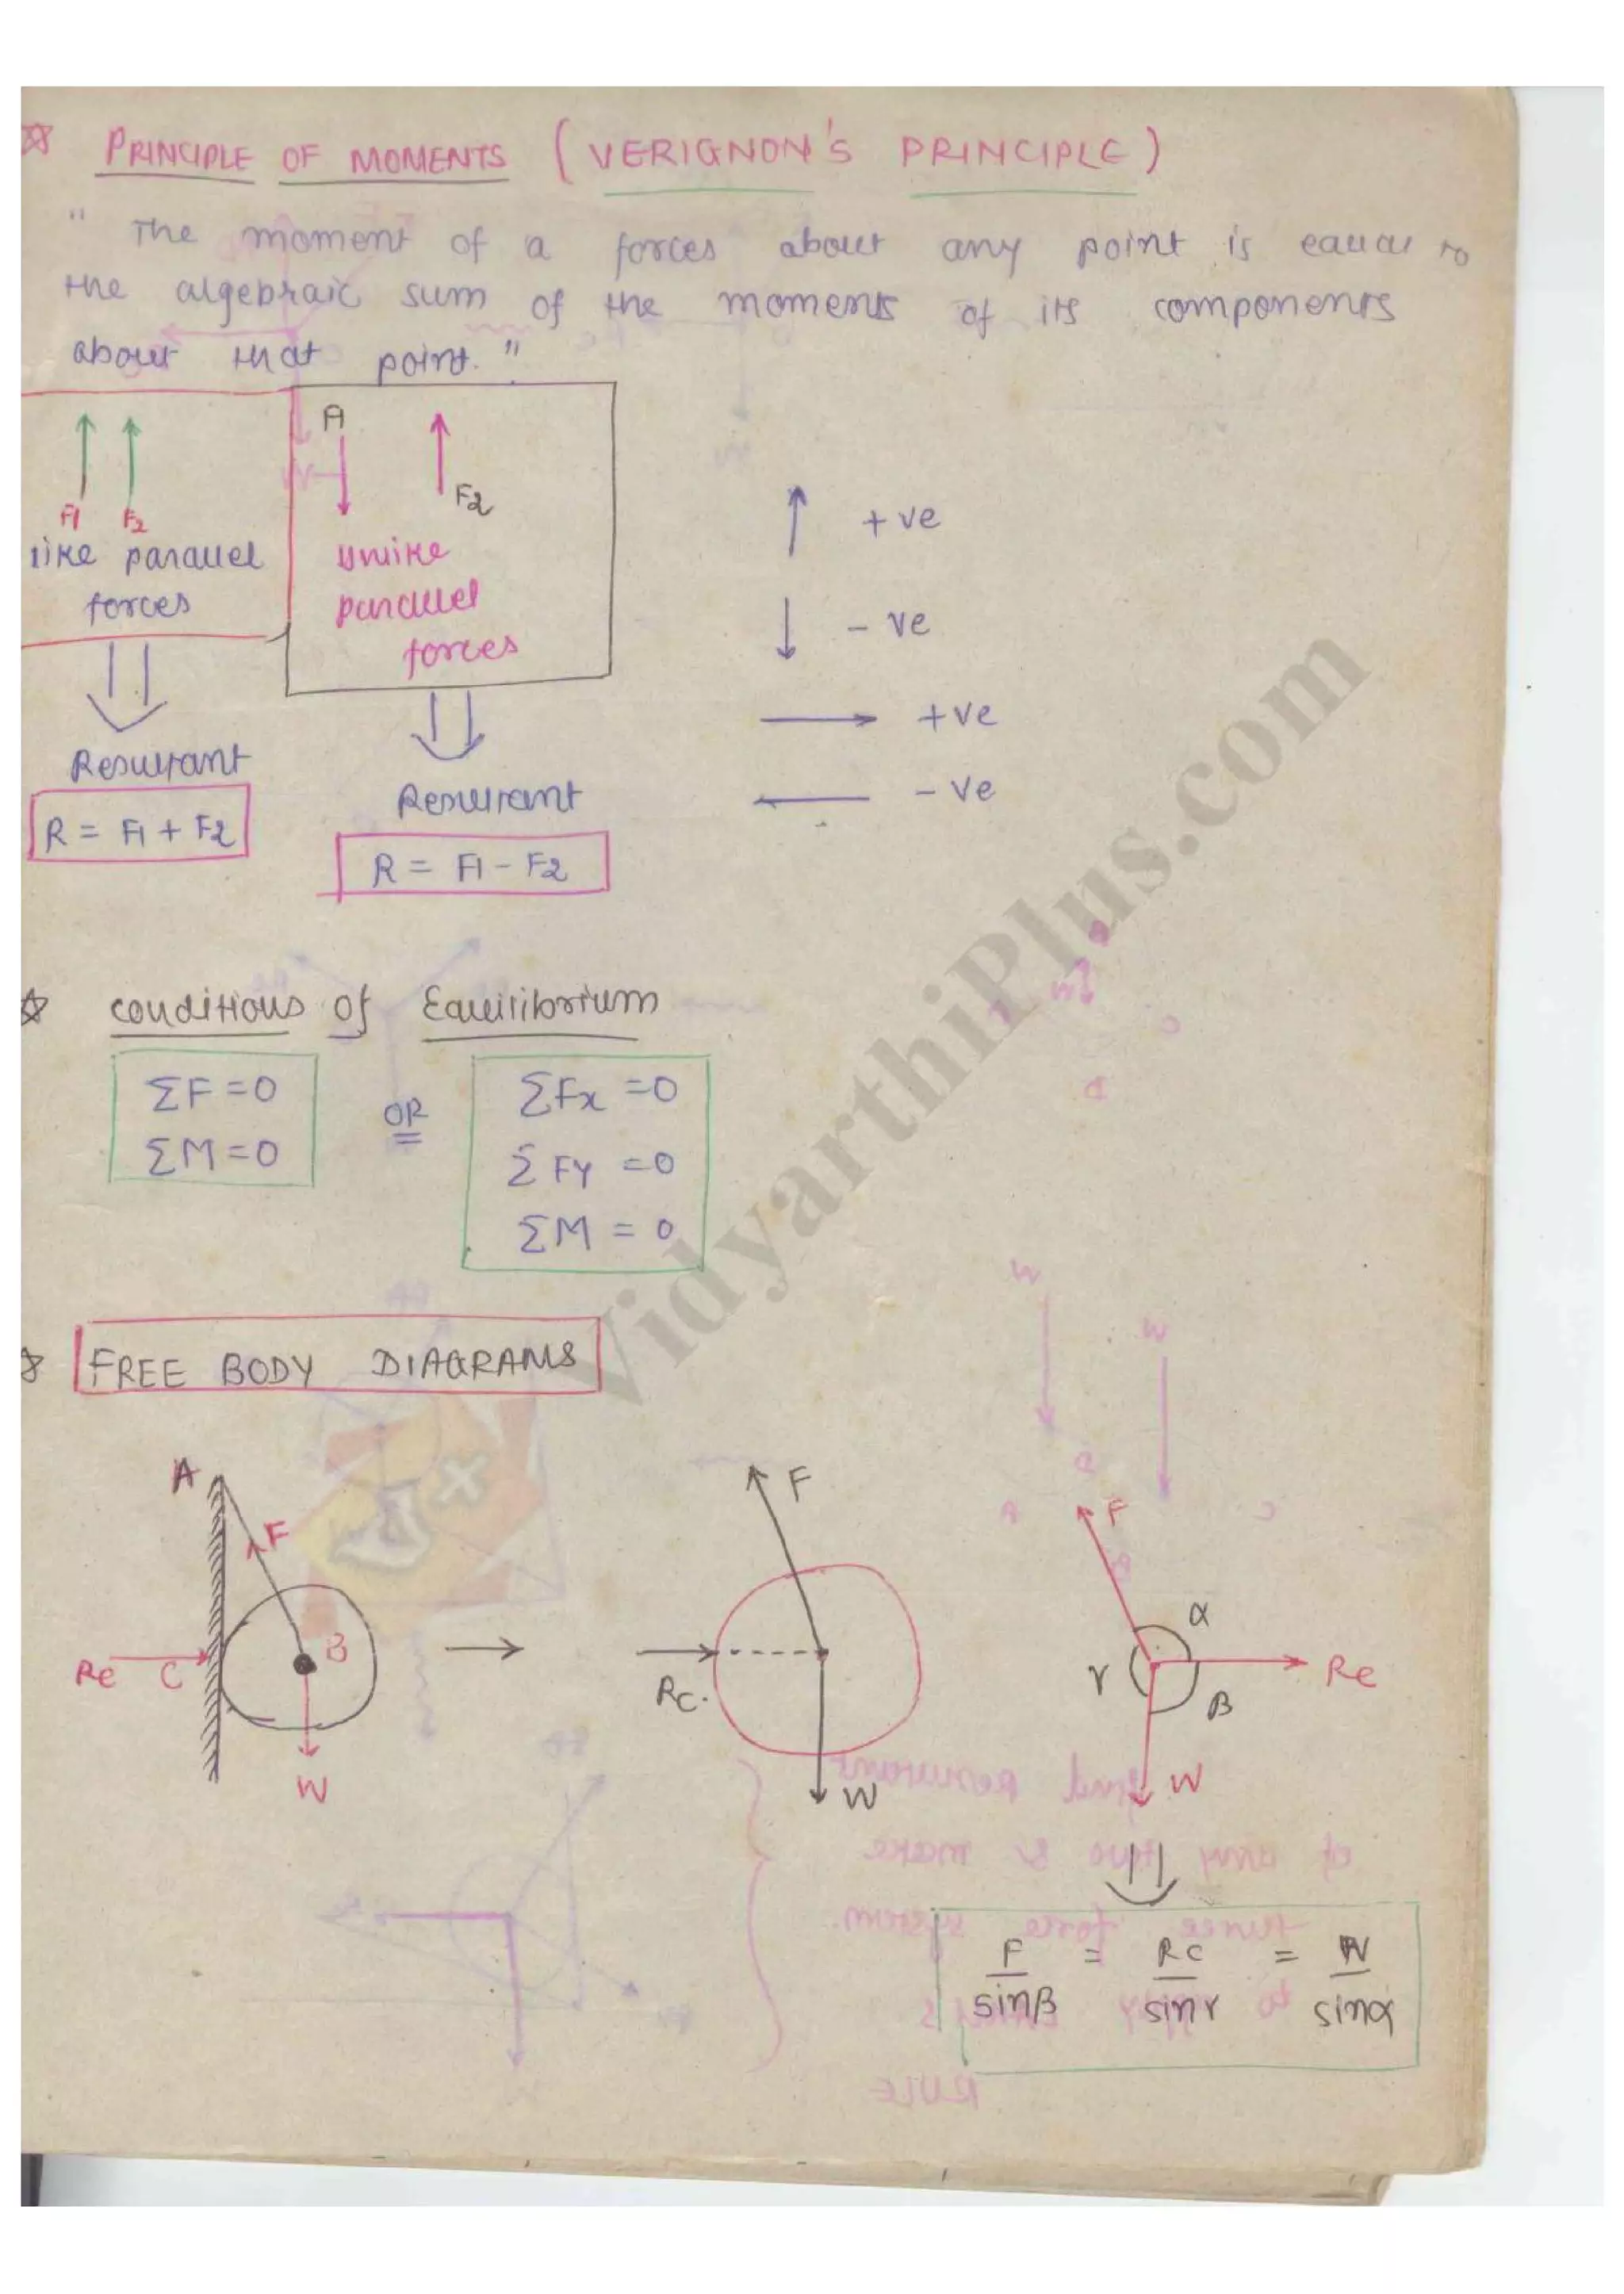 ☆ PRINCIPLE OF MOMENTS (VERIGNON'S PRINCIPLE)
" The moment of a forces about any point is equal to
the algebraic sum of the moments of its components
about that point."
F1 F2
like parallel
forces
Resultant
R = F1 + F2
A
F2
unlike
parallel
forces
Resultant
R = F1 - F2
+ve
- ve
+ve
- ve
☆ conditions of Equilibrium
ΣF = 0
ΣM = 0
OR
ΣFx = 0
ΣFy = 0
ΣM = 0
☆ FREE BODY DIAGRAMS
A
F
B
Rc C
W
F
Rc.
W
F
α
γ
Rc
β
W
F/sinβ = Rc/sinγ = W/sinα
VidyarthiPlus.com